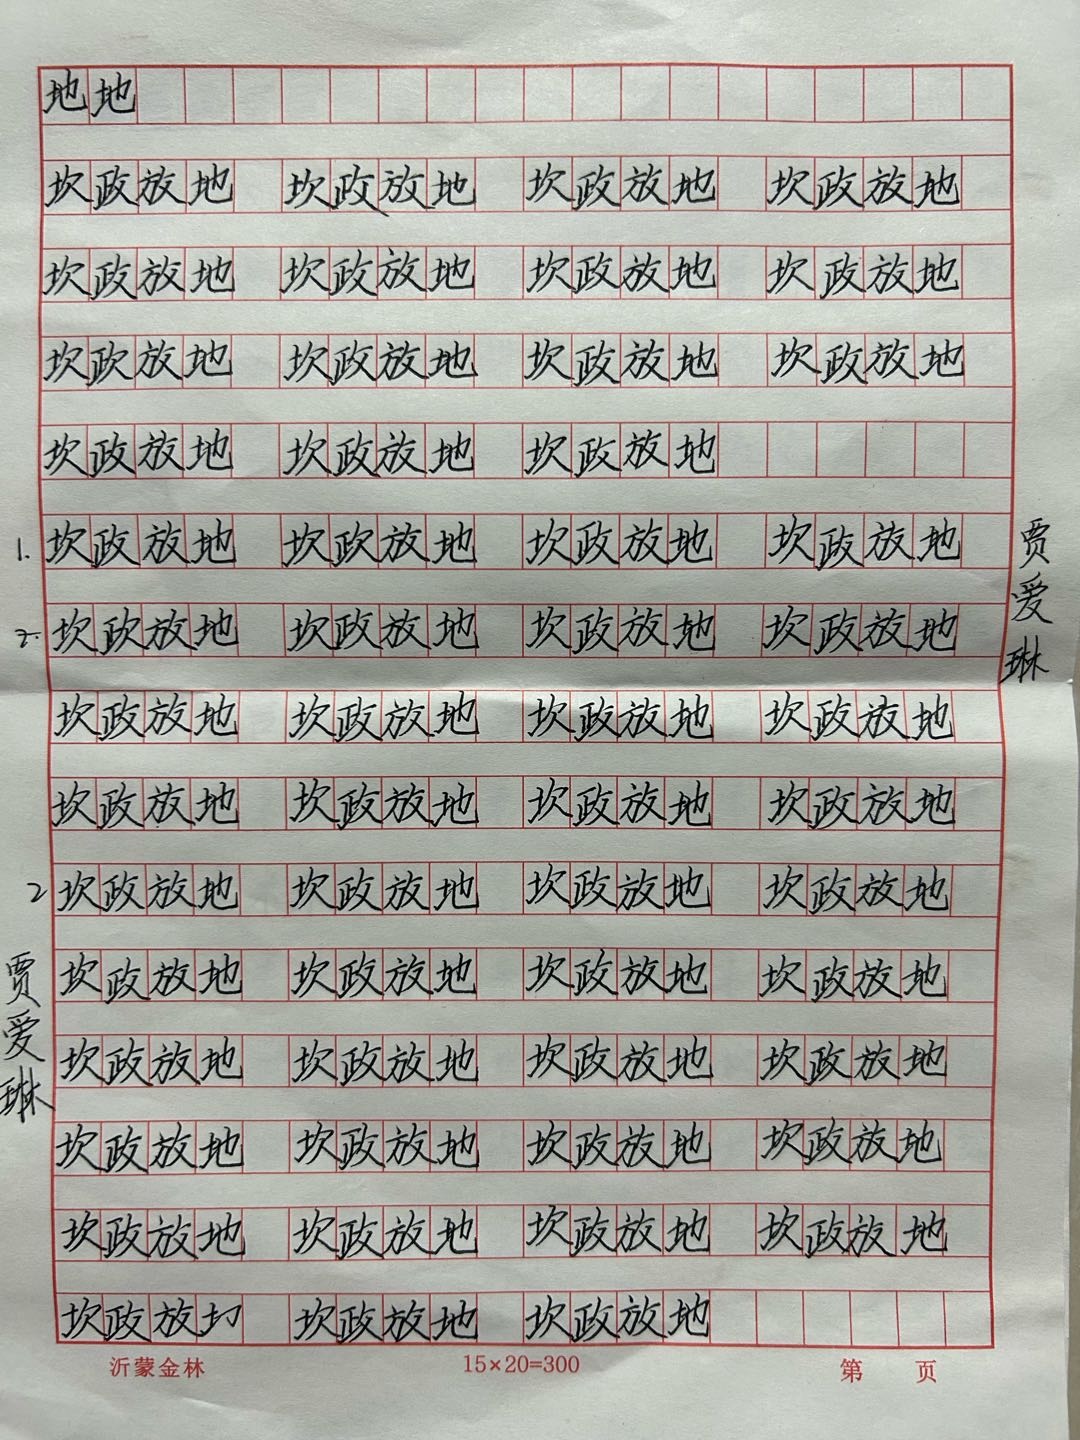 地地
坎政放地 坎政放地 坎政放地 坎政放地
坎政放地 坎政放地 坎政放地 坎政放地
坎政放地 坎政放地 坎政放地 坎政放地
坎政放地 坎政放地 坎政放地
1. 坎政放地 坎政放地 坎政放地 坎政放地
2. 坎政放地 坎政放地 坎政放地 坎政放地
贾爱琳
坎政放地 坎政放地 坎政放地 坎政放地
坎政放地 坎政放地 坎政放地 坎政放地
2 坎政放地 坎政放地 坎政放地 坎政放地
坎政放地 坎政放地 坎政放地 坎政放地
坎政放地 坎政放地 坎政放地 坎政放地
贾爱琳
坎政放地 坎政放地 坎政放地 坎政放地
坎政放地 坎政放地 坎政放地 坎政放地
坎政放 坎政放地 坎政放地
沂蒙金林 15×20=300 第 页